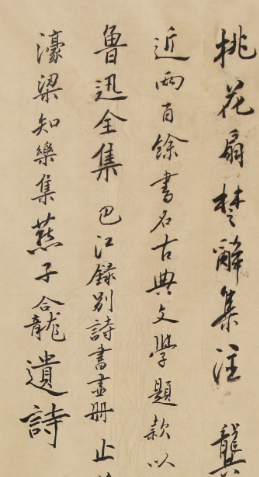 桃花扇楚辭集注龔
近兩百餘書名古典文學題款以
魯迅全集巴江録别詩書畫册止
濠梁知樂集燕子龕遺詩